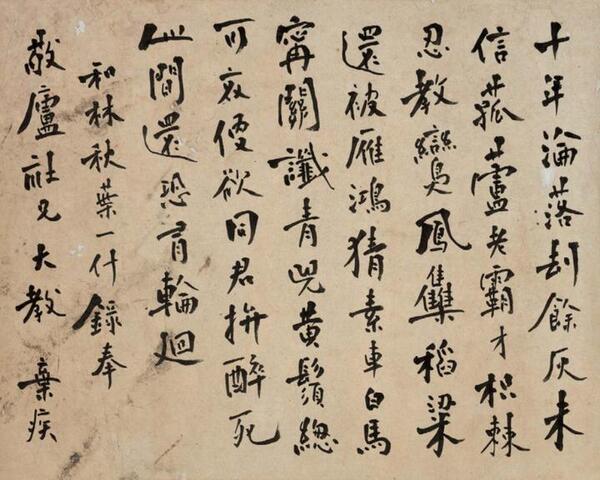 十年淪落劫餘灰未
信菰蘆老霸才枳棘
忍教鸞鳳集稻粱
還被雁鴻猜素車白馬
寧關讖青兕黄鬚總
可哀便欲同君拚醉死
此間還恐有輪迴
和林秋葉一什錄奉
敬廬社兄大教 棄疾